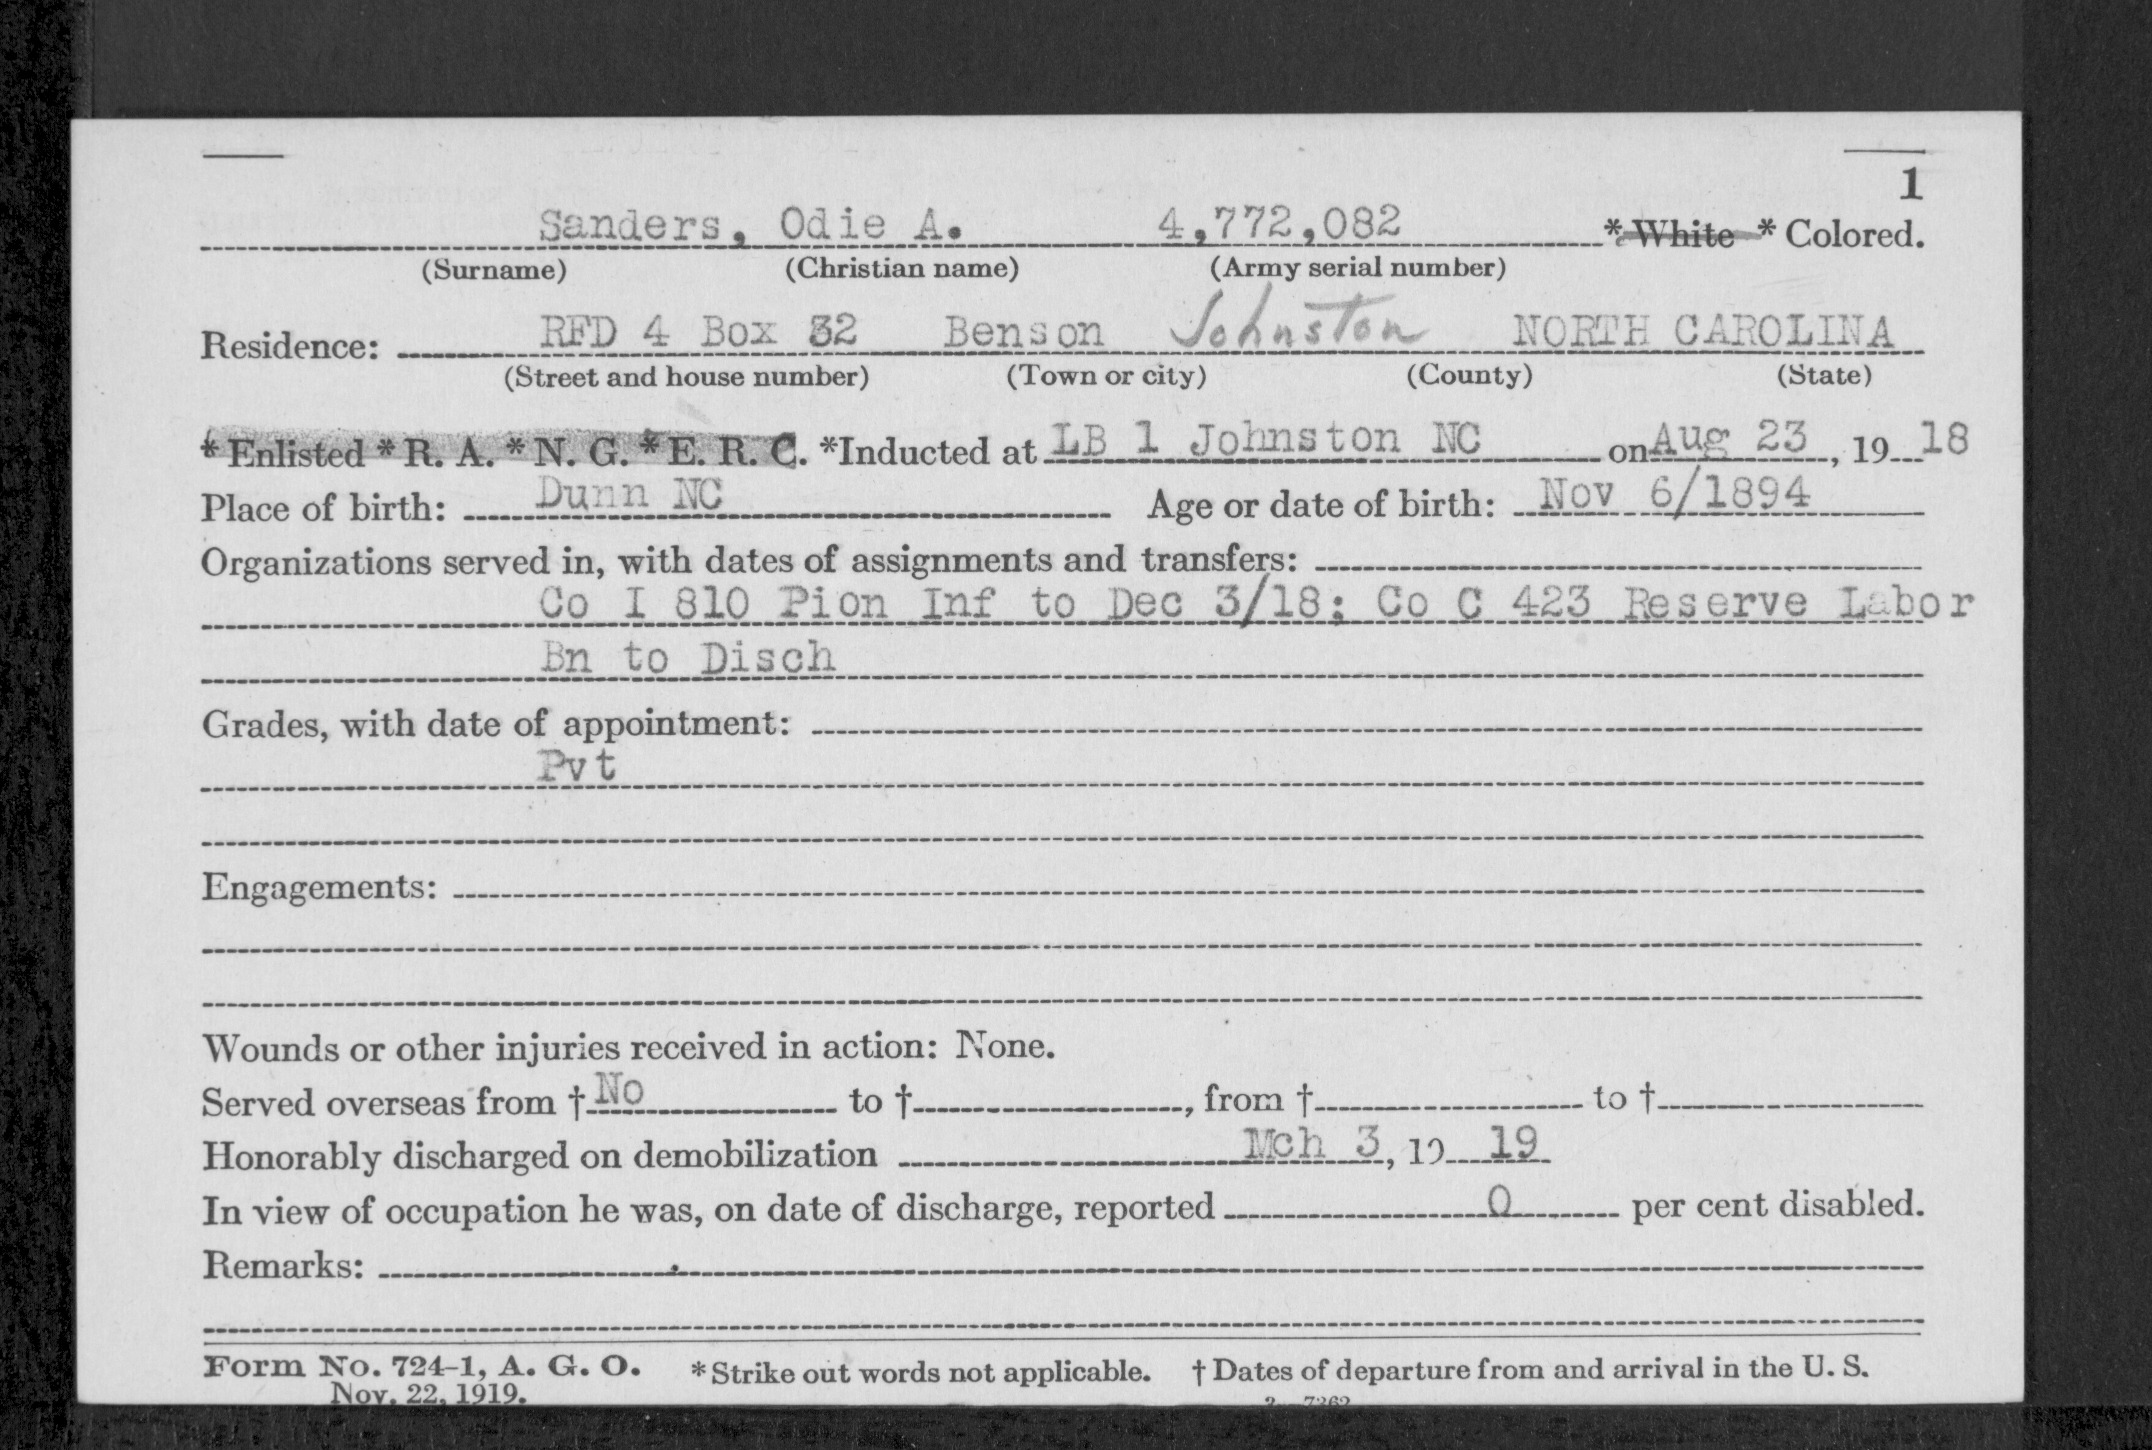 1
Sanders, Odie A. 4,772,082 * White * Colored.
(Surname) (Christian name) (Army serial number)
Residence: RFD 4 Box 32 Benson Johnston NORTH CAROLINA
(Street and house number) (Town or city) (County) (State)
* Enlisted * R. A. * N. G. * E. R. C. *Inducted at LB 1 Johnston NC on Aug 23, 19 18
Place of birth: Dunn NC Age or date of birth: Nov 6/1894
Organizations served in, with dates of assignments and transfers:
Co I 810 Pion Inf to Dec 3/18; Co C 423 Reserve Labor
Bn to Disch
Grades, with date of appointment:
Pvt
Engagements:
Wounds or other injuries received in action: None.
Served overseas from † No to †, from † to †
Honorably discharged on demobilization Mch 3, 19 19
In view of occupation he was, on date of discharge, reported 0 per cent disabled.
Remarks:
Form No. 724-1, A. G. O. * Strike out words not applicable. † Dates of departure from and arrival in the U. S.
Nov. 22, 1919.